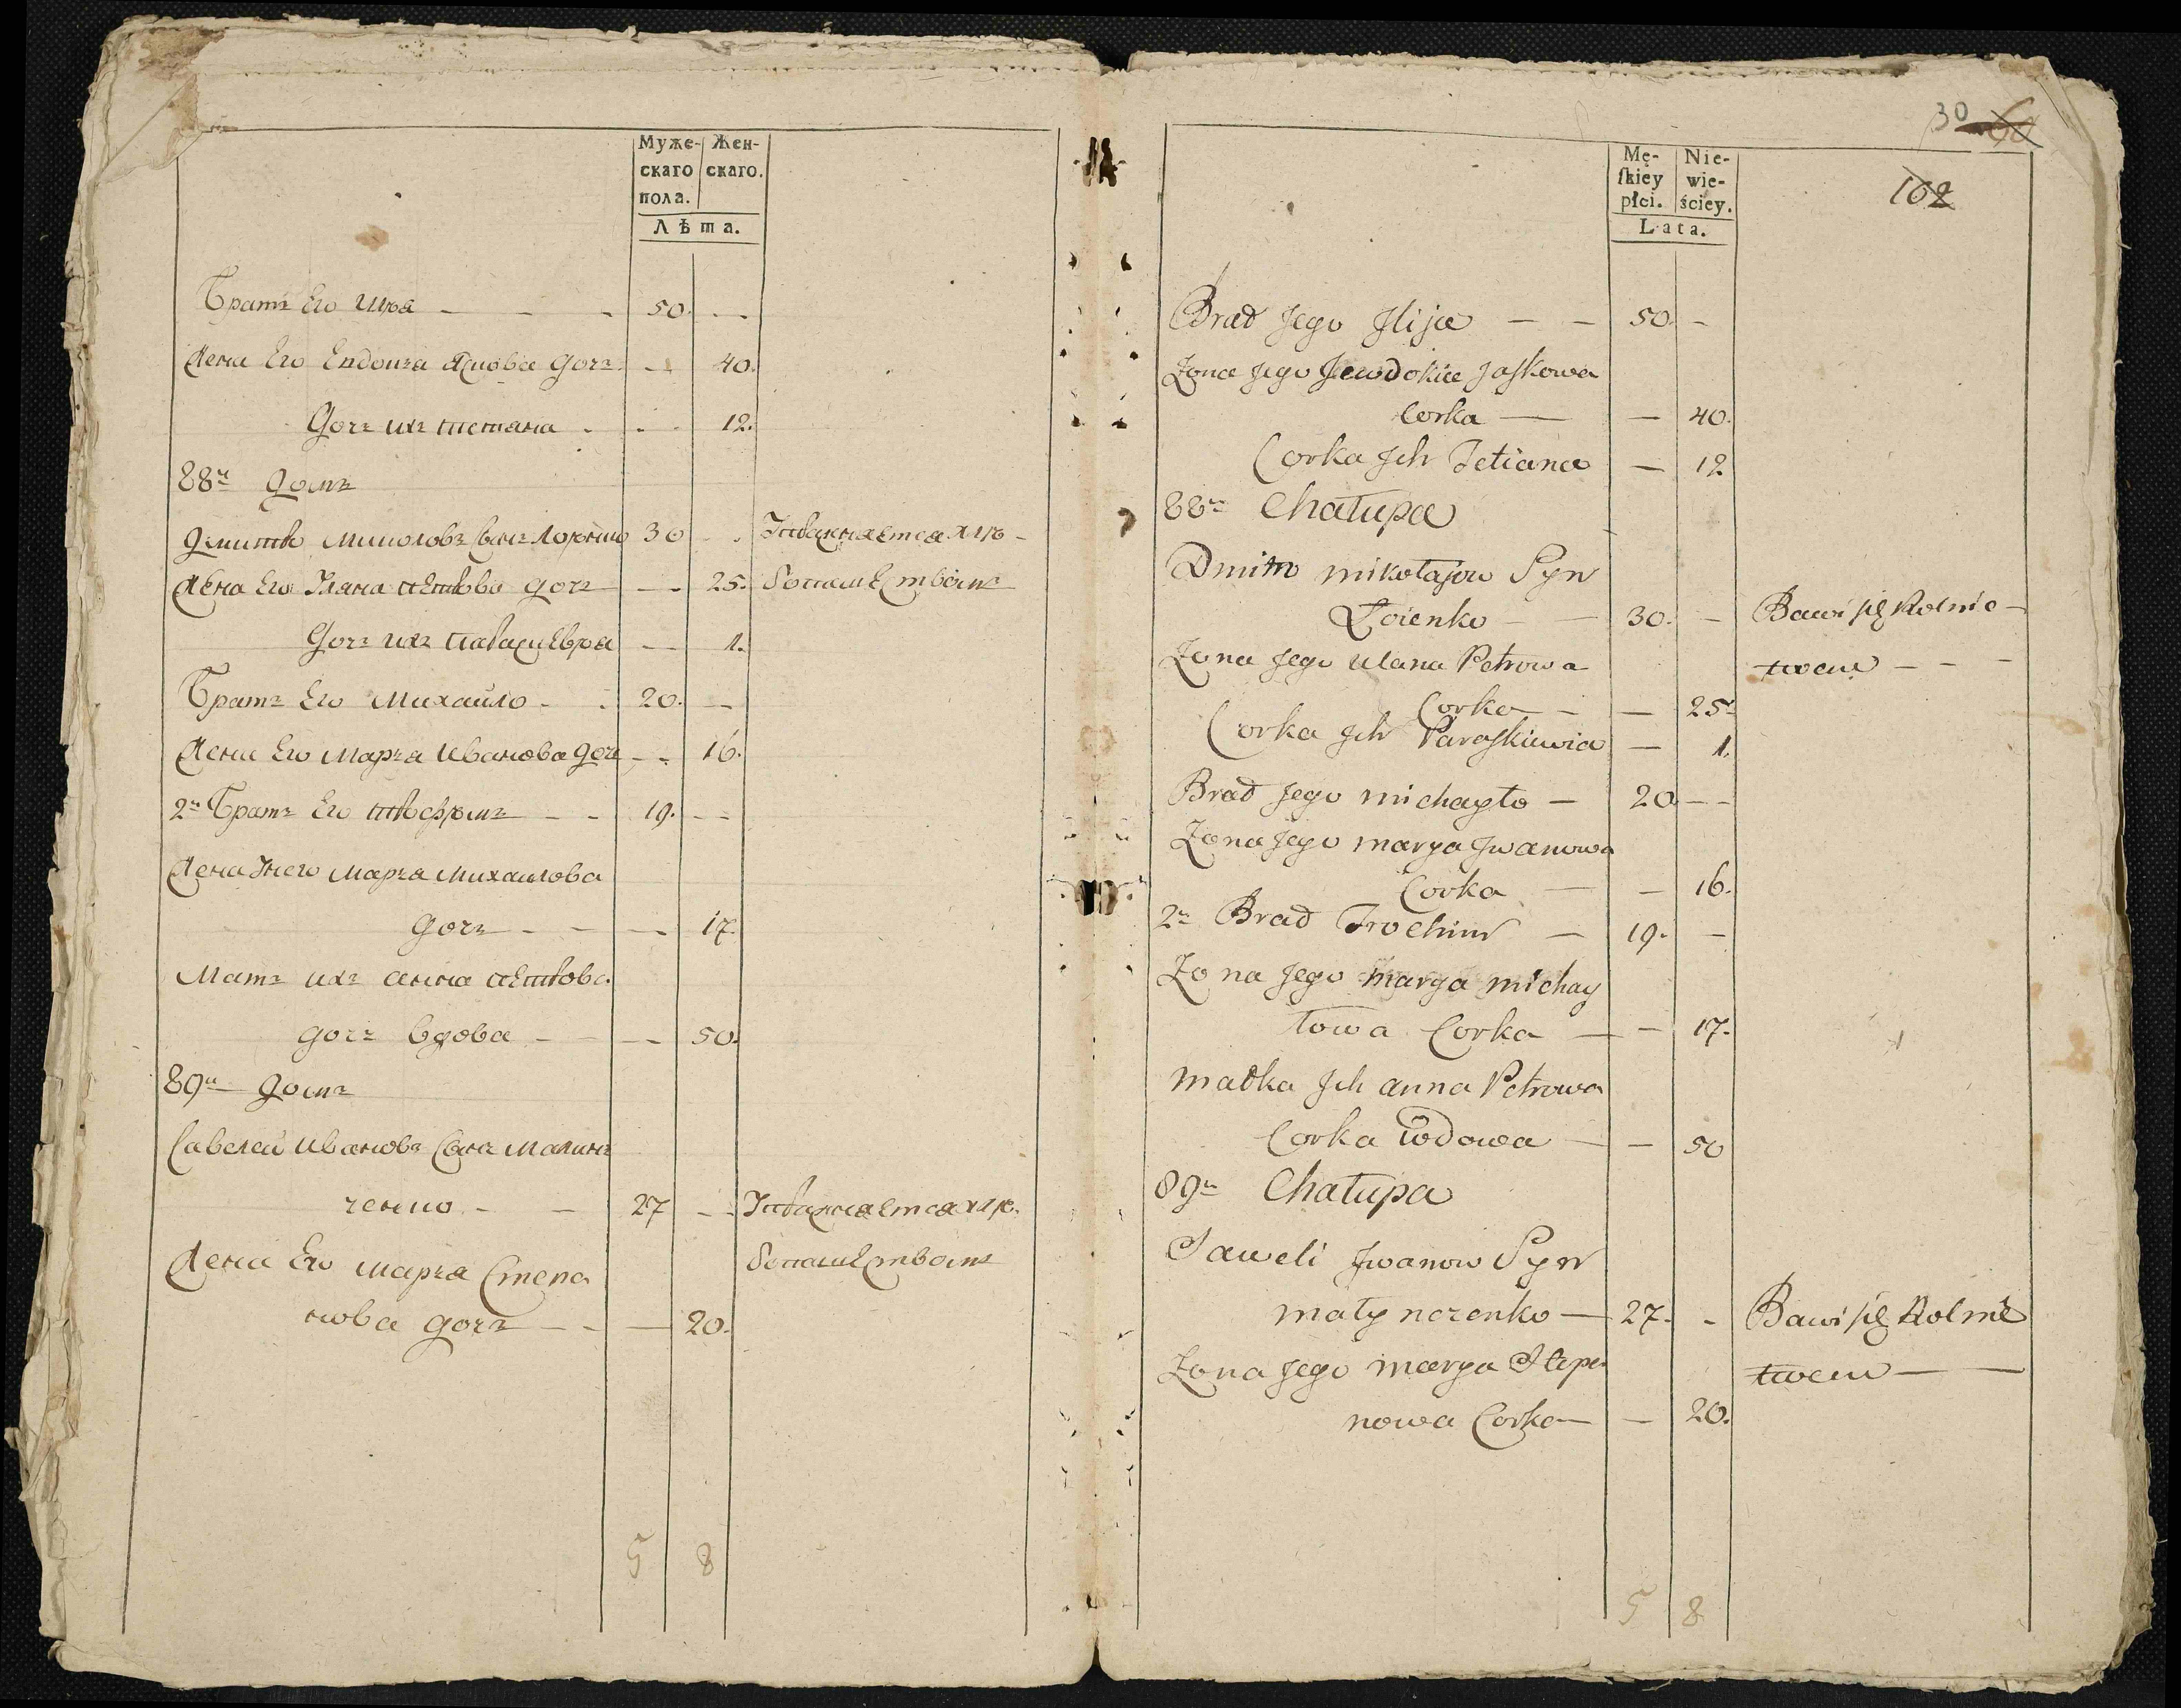 Муже-
скаго
пола.
Жен-
скаго.
Лѣта.
Братъ Его Илья - - - 50. - -
Жена Его Евдокѣя Яцкова дочь - - 40.
Дочь ихъ Тетяна - - - 12.
88й Домъ
Дмитро Миколовъ Сынъ Лоенко 30 - - Упражняется хлѣ-
Жена Его Уляна Петрова дочь - - 25. бопашеством
Дочь ихъ Параскевѣя - 1.
Братъ Его Михайло - - 20. -
Жена Его Маръя Иванова дочь - - 16.
2й Братъ Его Трофимъ - - 19. - -
Жена Его Маръя Михайлова
дочь - - - 17.
Мать ихъ Анна Петрова
дочь вдова - - - 50.
89й Домъ
Савелей Ивановъ Сынъ Малин
ченко - - 27 - - Упражняется хлѣ-
Жена Его Маръя Степа бопашеством
нова дочь - - - 20.
5 8
30 60
Mę-
ſkiey
płci.
Nie-
wie-
ściey.
162
Lata.
Brad Jego Jlija - - 50. -
Zona Jego Jewdokia Jaſkowa
Corka - - 40.
Corka Jch Tetiana - 12
88a Chałupa
Dmitro mikołajow Syn
Łoienko - - 30. - Bawi ſię Rolnic-
Zona Jego Ulana Petrowa twem - - -
Corka - - 25.
Corka Jch Paraſkiewia - 1.
Brad Jego michayło - 20. - -
Zona Jego marya Jwanowa
Corka - - 16.
2й Brad Trochim - 19. -
Zona Jego marya michay
łowa Corka - - 17.
matka Jch anna Petrowa
Corka wdowa - - 50
89a Chałupa
Saweli Jwanow Syn
małynczenko - 27. - Bawi ſię Rolnic
Zona Jego marya Stepa twem - -
nowa Corka - - 20.
5 8